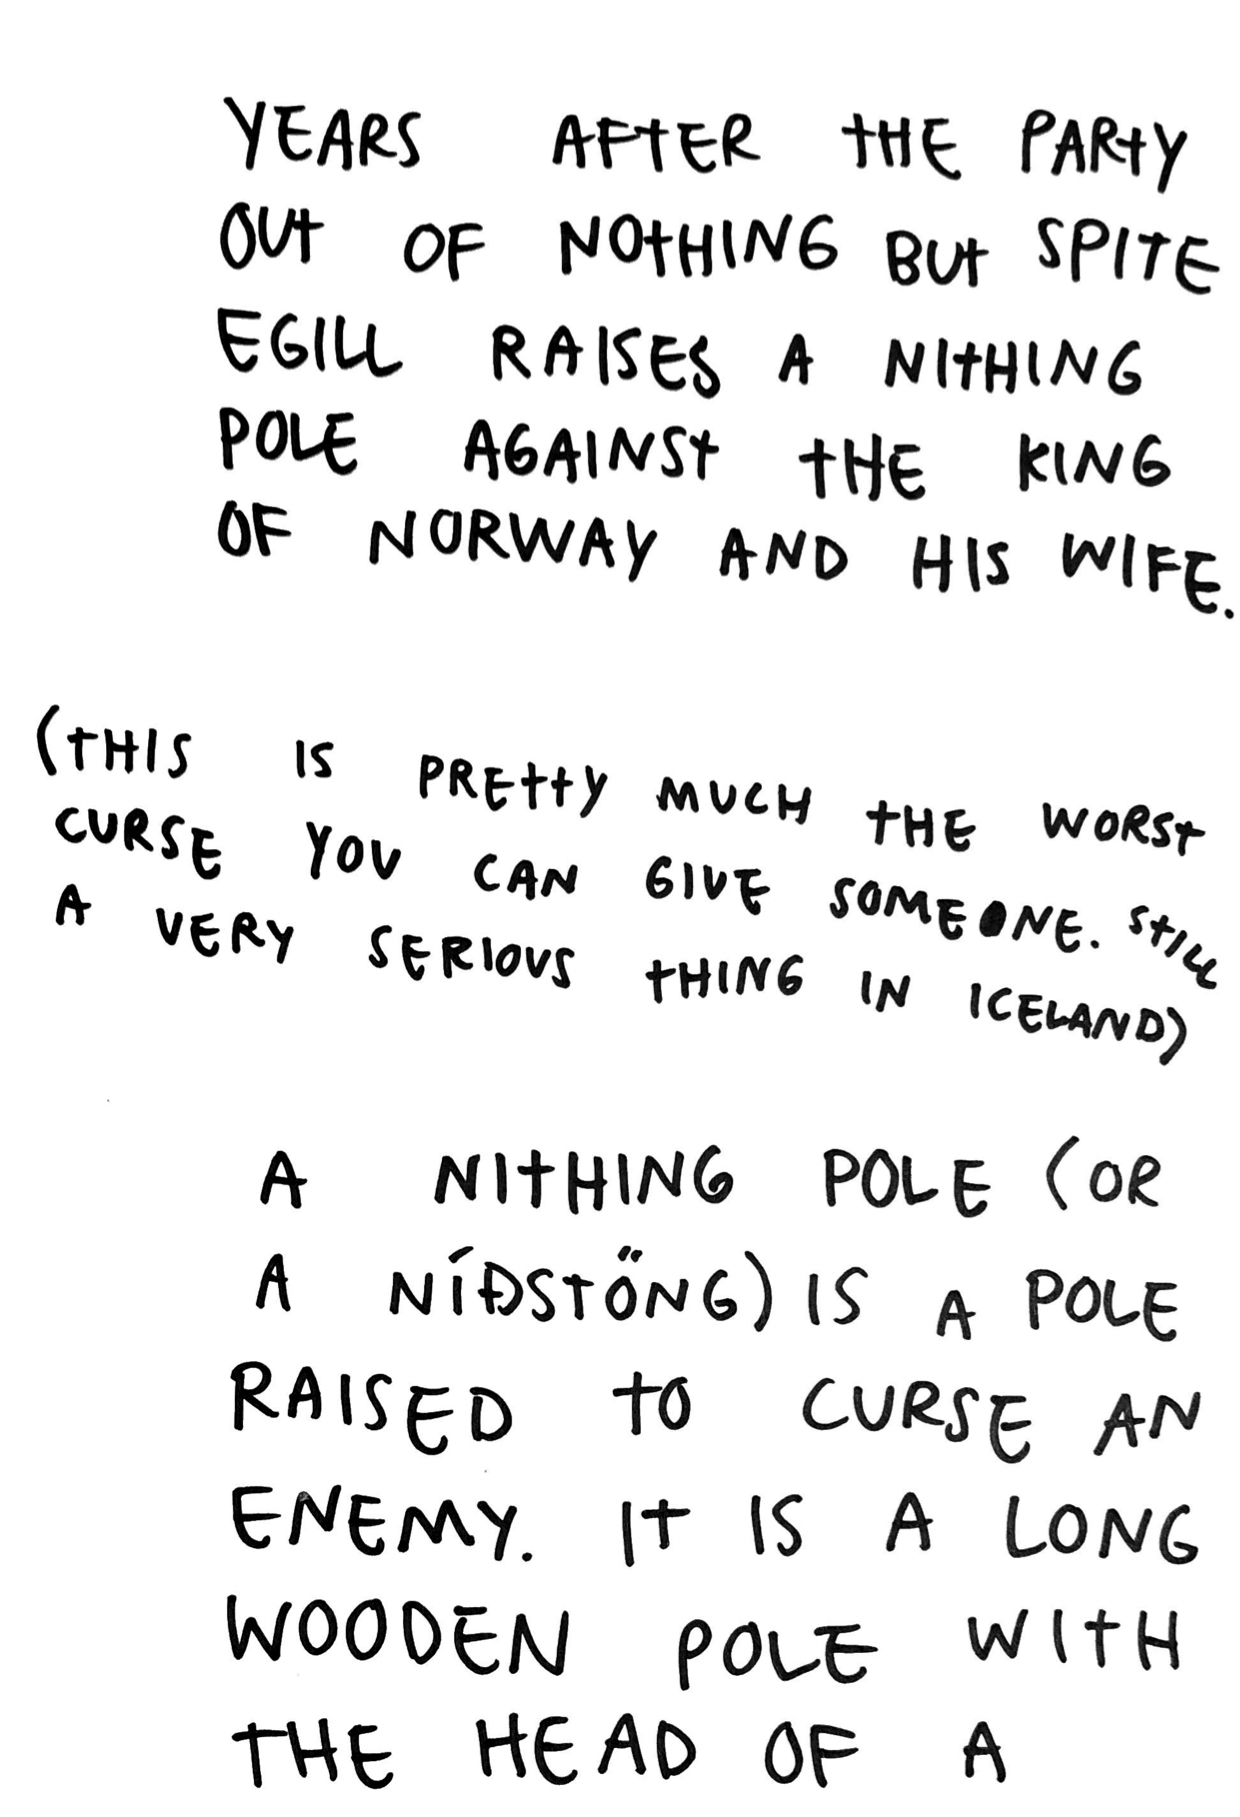 YEARS AFTER THE PARTY
OUT OF NOTHING BUT SPITE
EGILL RAISES A NITHING
POLE AGAINST THE KING
OF NORWAY AND HIS WIFE.
(THIS IS PRETTY MUCH THE WORST
CURSE YOU CAN GIVE SOMEONE. STILL
A VERY SERIOUS THING IN ICELAND)
A NITHING POLE (OR
A NÍÐSTÖNG) IS A POLE
RAISED TO CURSE AN
ENEMY. IT IS A LONG
WOODEN POLE WITH
THE HEAD OF A